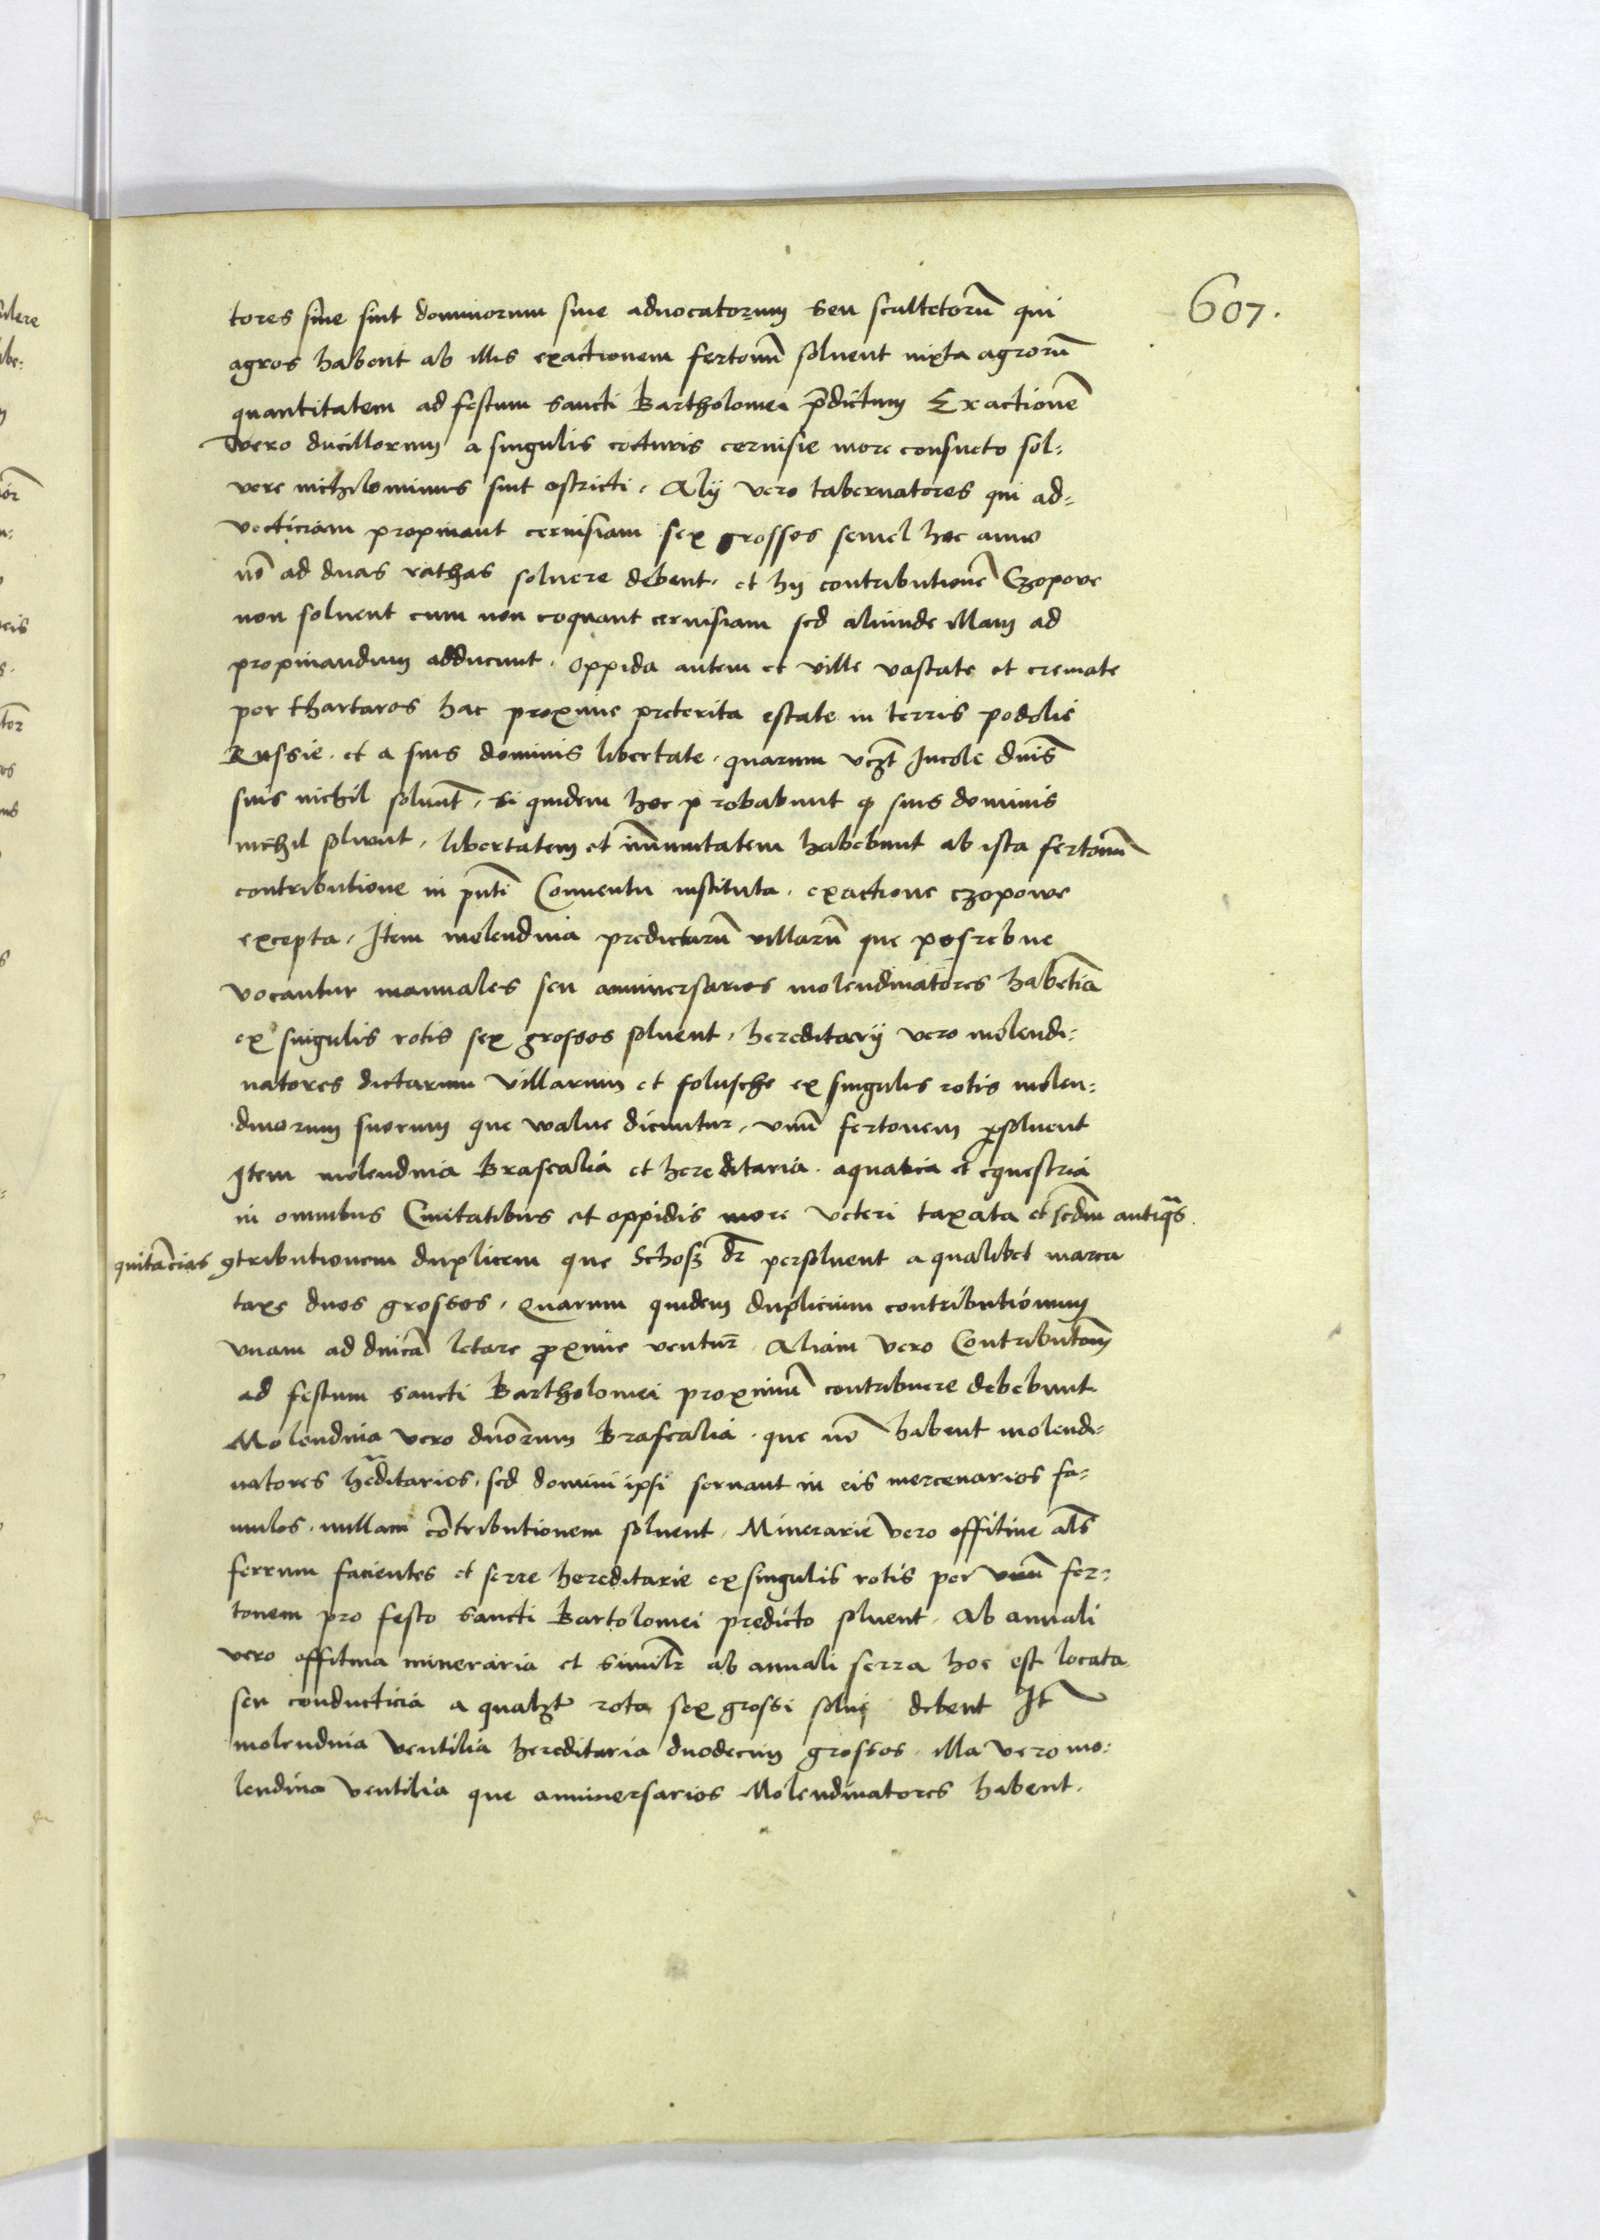 607.
tores siue sint dominorum siue aduocatorum seu scultetorũ qui
agros habent ab illis exactionem fertonũ soluent iuxta agrorũ
quantitatem ad festum sancti Bartholomei p̃dictum Exactionẽ
vero ducillorum a singulis cocturis ceruisie more consueto sol-
vere nichilominus sint astricti. Alij vero tabernatores qui ad-
vecticiam propinant ceruisiam sex grossos semel hoc anno
nõ ad duas rathas soluere debent. et hij contributionẽ Czopove
non soluent cum non coquant ceruisiam sed aliunde illam ad
propinandum adducunt. oppida autem et ville vastate et cremate
per thartaros hac proxime preterita estate in terris podolie
Russie. et a suis dominis libertate. quarum vcz̃t Incole dñis
suis nichil soluũt, si quidem hoc probabunt q suis dominis
nichil soluunt, libertatem et im̃unitatem habebunt ab ista fertonũ
contributione in pñti Conuentu instituta. exactione czopowe
excepta, Item molendina predictarũ villarũ que posrebne
vocantur manuales seu anniuersarios molendinatores habẽtia
ex singulis rotis sex grossos soluent, hereditarij vero molendi-
natores dictarum villarum et folusche ex singulis rotis molen-
dinorum suorum que walne dicuntur, vnũ fertonem p̱soluent
Item molendina Brasealia et hereditaria. aquatica et equestria
in omnibus Ciuitatibus et oppidis more veteri taxata et sc̃dm antiq̃s
quitãcias ꝯtributionem duplicem que Schoß dr̃ persoluent a qualibet marca
taxe duos grossos, Quarum quidem duplicium contributionum
vnam ad dñicã letare p̱xime ventur̃ Aliam vero Contributõm
ad festum sancti Bartholomei proximũ contribuere debebunt
Molendina vero dñorum Brasealia. que nõ habent molendi-
natores hẽditarios, sed domini ipsi seruant in eis mercenarios fa-
mulos. nullam cõtributionem soluent, Minerarie vero offitine al̃s
ferrum facientes et serre hereditarie ex singulis rotis per vnũ fer-
tonem pro festo sancti Bartolomei predicto soluent. Ab annali
vero offitina mineraria et simil̃r ab annali serra hoc est locata
seu conducticia a qualz̃t rota sex grossi solui debent It̃
molendina ventilia hereditaria duodecim grossos. illa vero mo-
lendina ventilia que anniuersarios Molendinatores habent.